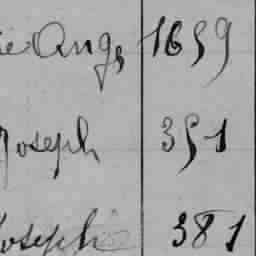 ie Ang, 1659
Joseph 351
Joseph 381